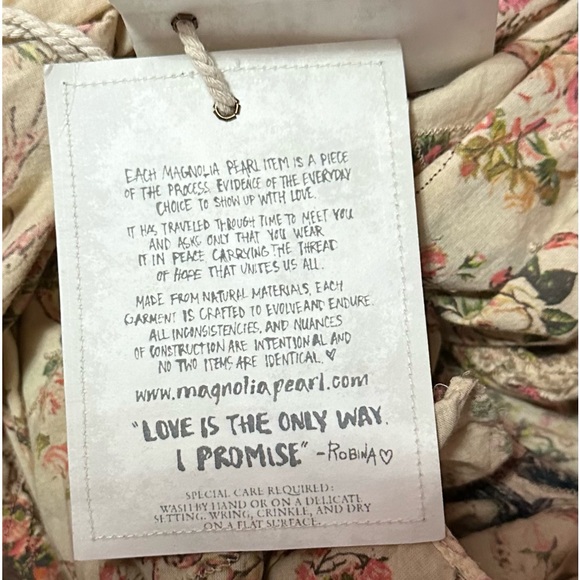 EACH MAGNOLIA PEARL ITEM IS A PIECE
OF THE PROCESS. EVIDENCE OF THE EVERYDAY
CHOICE TO SHOW UP WITH LOVE.
IT HAS TRAVELED THROUGH TIME TO MEET YOU
AND ASKS ONLY THAT YOU WEAR
IT IN PEACE, CARRYING THE THREAD
OF HOPE THAT UNITES US ALL.
MADE FROM NATURAL MATERIALS, EACH
GARMENT IS CRAFTED TO EVOLVE AND ENDURE.
ALL INCONSISTENCIES, AND NUANCES
OF CONSTRUCTION ARE INTENTIONAL AND
NO TWO ITEMS ARE IDENTICAL. ♡
www.magnoliapearl.com
"LOVE IS THE ONLY WAY.
I PROMISE" -ROBINA♡
SPECIAL CARE REQUIRED:
WASH BY HAND OR ON A DELICATE
SETTING, WRING, CRINKLE, AND DRY
ON A FLAT SURFACE.